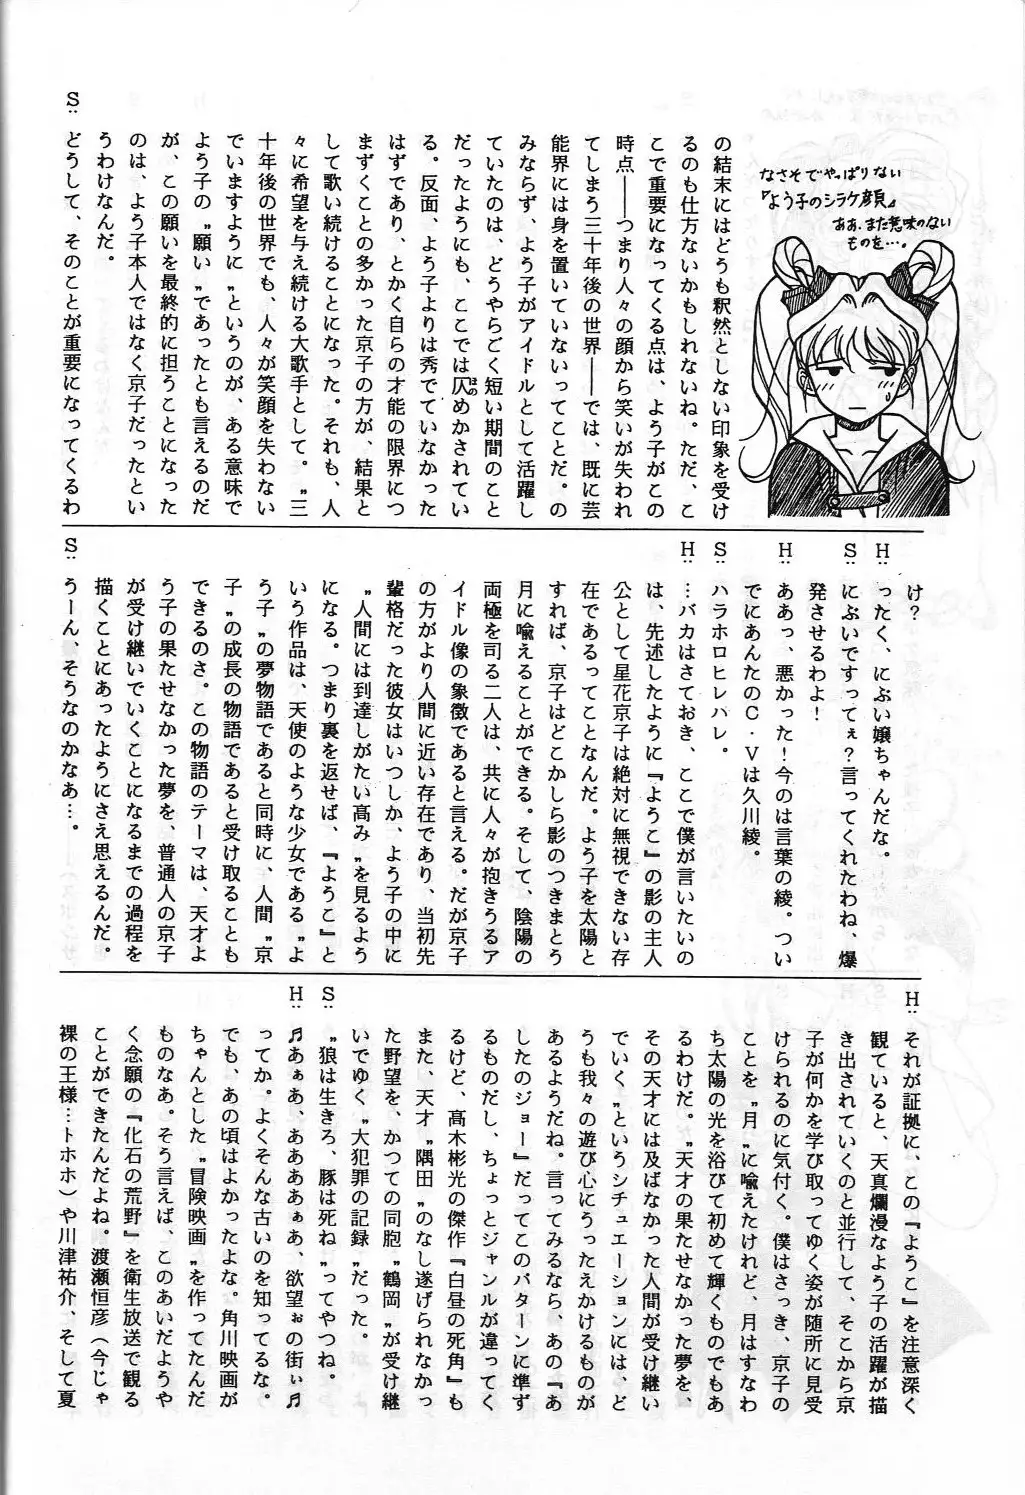 なさそでやっぱりない
『よう子のシラケ顔』
ああ、また意味のない
ものを…。
の結末にはどうも釈然としない印象を受け
るのも仕方ないかもしれないね。ただ、こ
こで重要になってくる点は、よう子がこの
時点――つまり人々の顔から笑いが失われ
てしまう三十年後の世界――では、既に芸
能界には身を置いていないってことだ。の
みならず、よう子がアイドルとして活躍し
ていたのは、どうやらごく短い期間のこと
だったようにも、ここでは仄めかされてい
ほの
る。反面、よう子よりは秀でていなかった
はずであり、とかく自らの才能の限界につ
まずくことの多かった京子の方が、結果と
して歌い続けることになった。それも、人
々に希望を与え続ける大歌手として。〝三
十年後の世界でも、人々が笑顔を失わない
でいますように〟というのが、ある意味で
よう子の〝願い〟であったとも言えるのだ
が、この願いを最終的に担うことになった
のは、よう子本人ではなく京子だったとい
うわけなんだ。
S:どうして、そのことが重要になってくるわ
け?
H:ったく、にぶい嬢ちゃんだな。
S:にぶいですってぇ?言ってくれたわね、爆
発させるわよ!
H:ああっ、悪かった!今のは言葉の綾。つい
でにあんたのC・Vは久川綾。
S:ハラホロヒレハレ。
H:…バカはさておき、ここで僕が言いたいの
は、先述したように『ようこ』の影の主人
公として星花京子は絶対に無視できない存
在であるってことなんだ。よう子を太陽と
すれば、京子はどこかしら影のつきまとう
月に喩えることができる。そして、陰陽の
両極を司る二人は、共に人々が抱きうるア
イドル像の象徴であると言える。だが京子
の方がより人間に近い存在であり、当初先
輩格だった彼女はいつしか、よう子の中に
〝人間には到達しがたい高み〟を見るよう
になる。つまり裏を返せば、『ようこ』と
いう作品は、天使のような少女である〝よ
う子〟の夢物語であると同時に、人間〝京
子〟の成長の物語であると受け取ることも
できるのさ。この物語のテーマは、天才よ
う子の果たせなかった夢を、普通人の京子
が受け継いでいくことになるまでの過程を
描くことにあったようにさえ思えるんだ。
S:うーん、そうなのかなあ…。
H:それが証拠に、この『ようこ』を注意深く
観ていると、天真爛漫なよう子の活躍が描
き出されていくのと並行して、そこから京
子が何かを学び取ってゆく姿が随所に見受
けられるのに気付く。僕はさっき、京子の
ことを〝月〟に喩えたけれど、月はすなわ
ち太陽の光を浴びて初めて輝くものでもあ
るわけだ。〝天才の果たせなかった夢を、
その天才には及ばなかった人間が受け継い
でいく〟というシチュエーションには、ど
うも我々の遊び心にうったえかけるものが
あるようだね。言ってみるなら、あの『あ
したのジョー』だってこのパターンに準ず
るものだし、ちょっとジャンルが違ってく
るけど、高木彬光の傑作『白昼の死角』も
また、天才〝隅田〟のなし遂げられなかっ
た野望を、かつての同胞〝鶴岡〟が受け継
いでゆく〝大犯罪の記録〟だった。
S:〝狼は生きろ、豚は死ね〟ってやつね。
H:♬あぁあ、ああああぁあ、欲望ぉの街ぃ♬
ってか。よくそんな古いのを知ってるな。
でも、あの頃はよかったよな。角川映画が
ちゃんとした〝冒険映画〟を作ってたんだ
ものなあ。そう言えば、このあいだようや
く念願の『化石の荒野』を衛生放送で観る
ことができたんだよね。渡瀬恒彦(今じゃ
裸の王様…トホホ)や川津祐介、そして夏